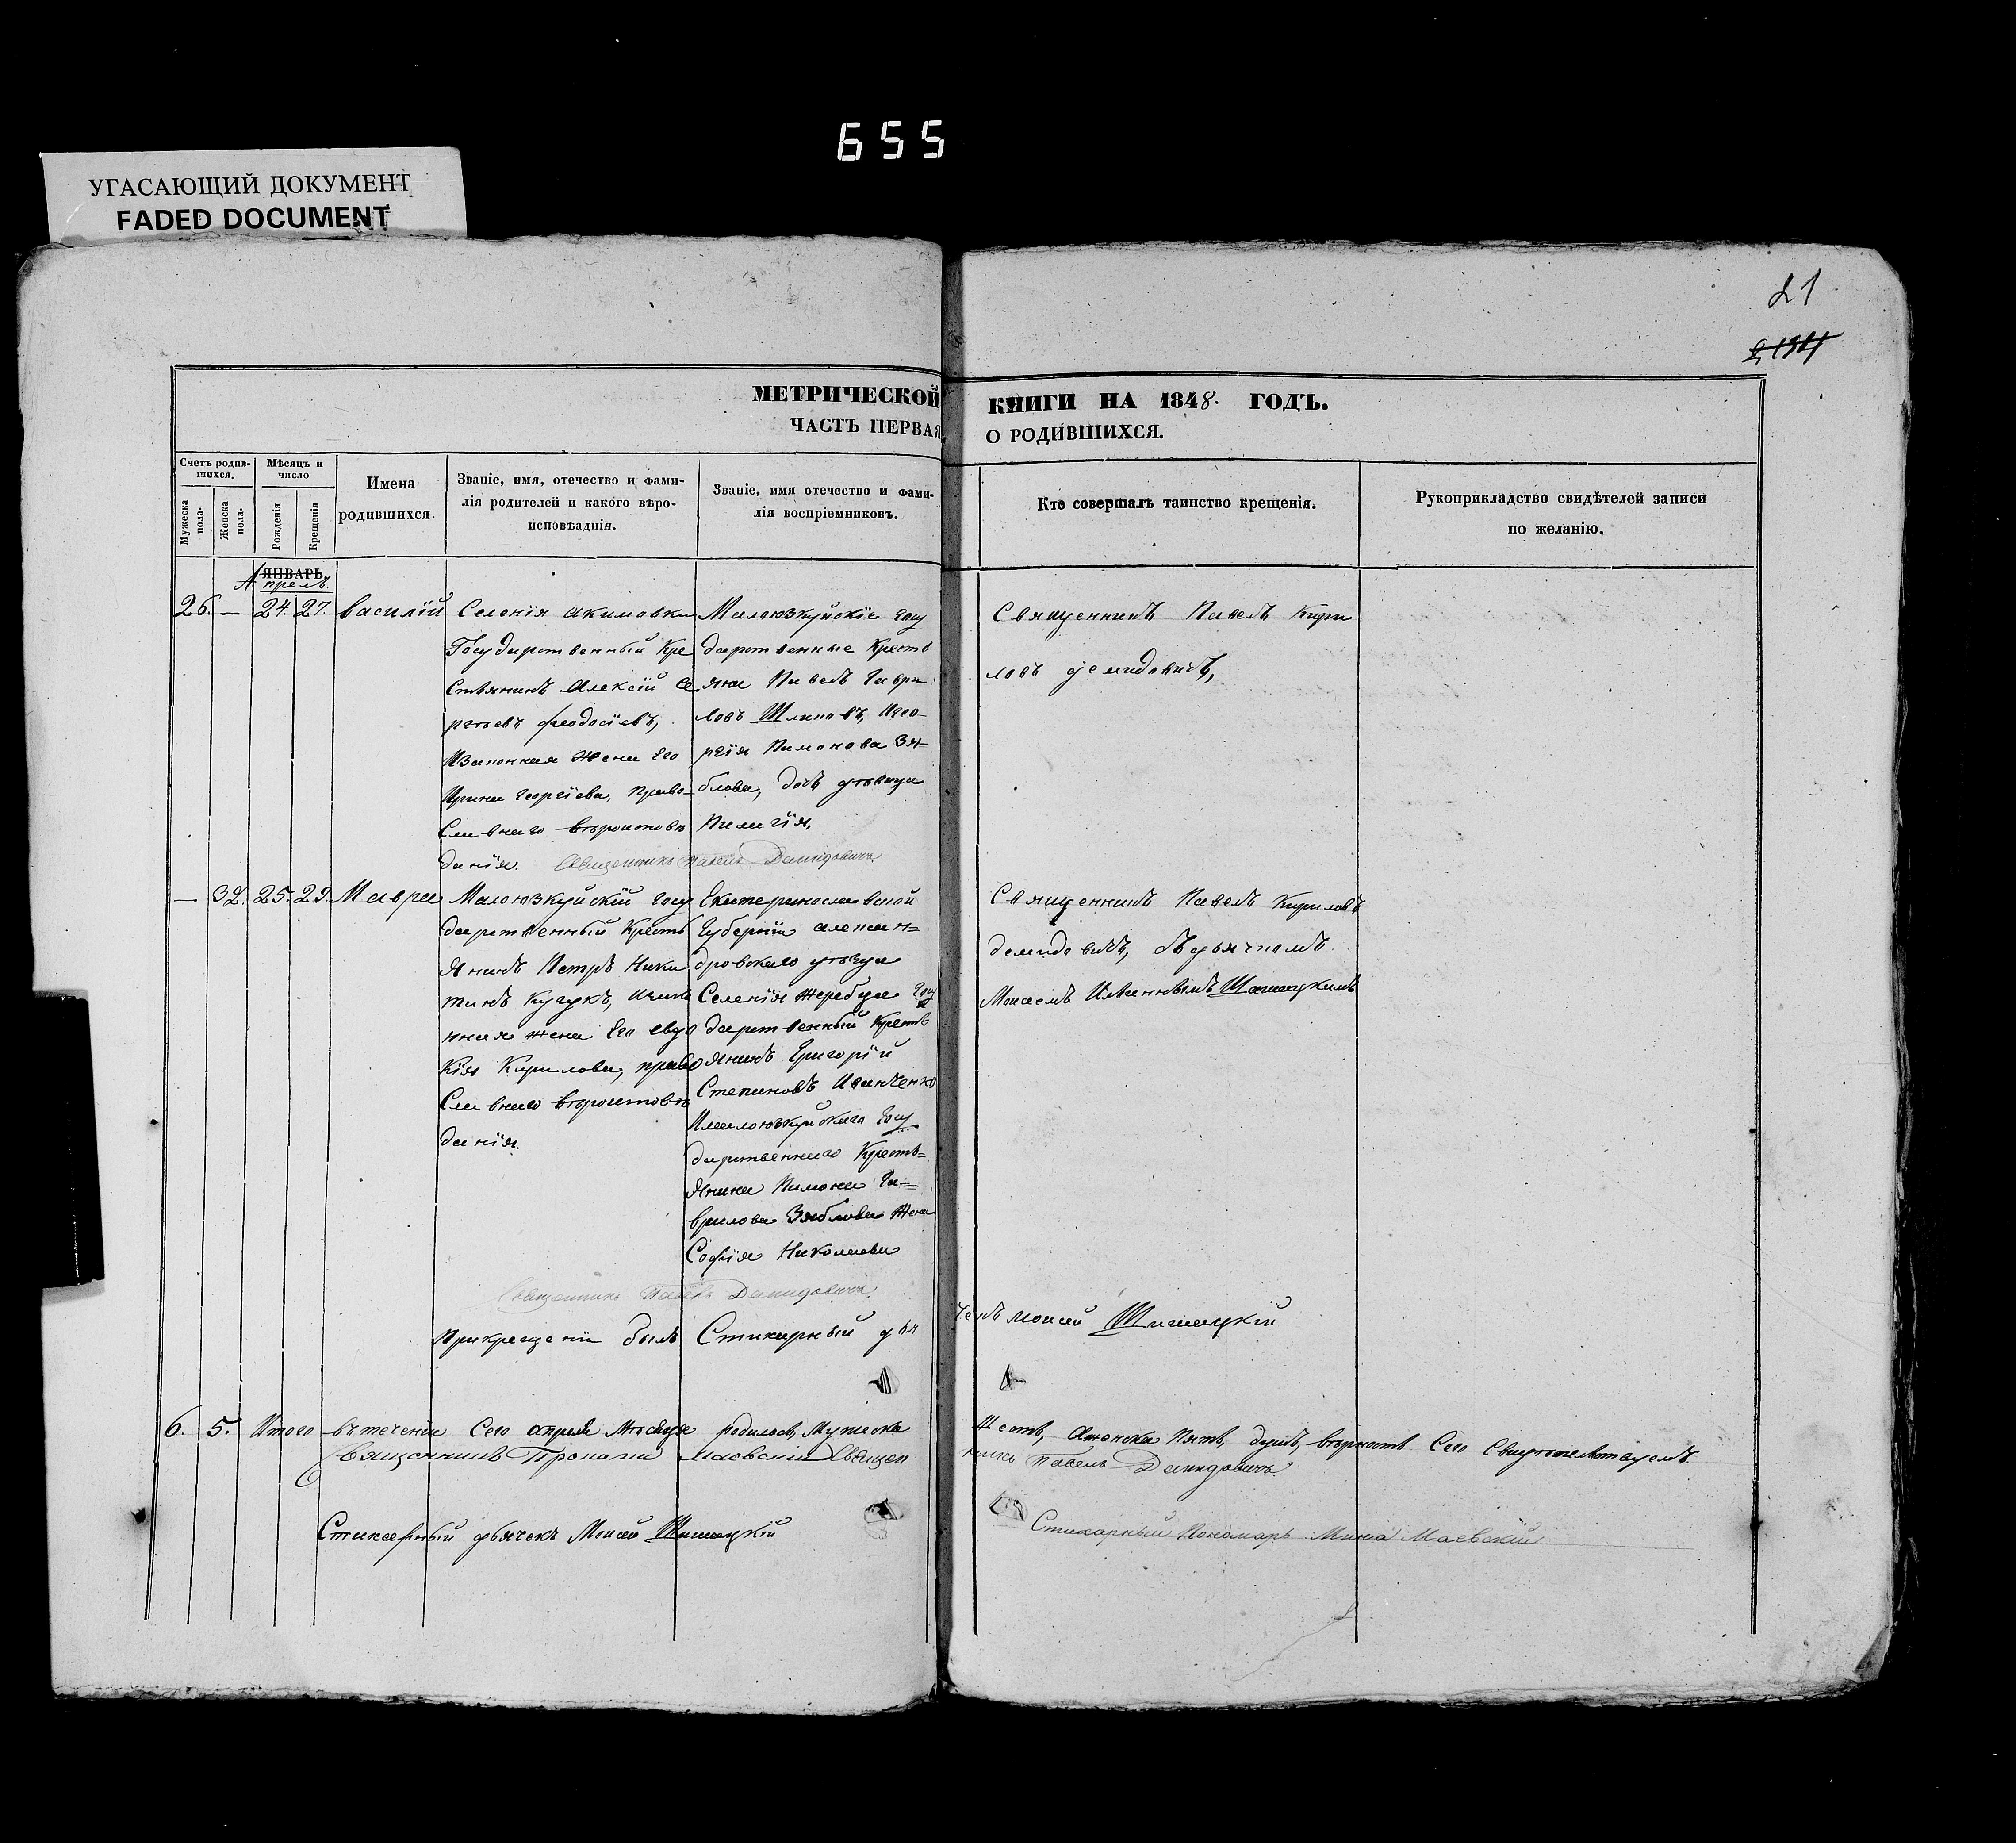 655
УГАСАЮЩИЙ ДОКУМЕНТ
FADED DOCUMENT
21
МЕТРИЧЕСКОЙ КНИГИ НА 1848. ГОДЪ.
ЧАСТЬ ПЕРВАЯ, О РОДИВШИХСЯ.
Счетъ родив-
шихся.
Мужеска
пола.
Женска
пола.
Мѣсяцъ и
число
Рожденія
Крещенія
Имена
родившихся.
Званіе, имя, отечество и фами-
лія родителей и какого вѣро-
исповѣаднія.
Званіе, имя отечество и фами-
лія воспріемниковъ.
Кто совершалъ таинство крещенія.
Рукоприкладство свидѣтелей записи
по желанію.
ЯНВАРЬ
Апрель.
26. — 24. 27. Василій
Селенія акимовки
Государственный Кре
стьянинъ Алексій Се
ргѣевъ Феодосіевъ,
Изаконная жена Его
Ирина Георгіева, право-
славнаго вѣроисповѣ
данія.
Малоюзкуйскіе Госу
дарственные Кресть
яне Павелъ Гаври
ловъ Шляповъ,
Пимонова Зя-
блова, дочь дѣвица
Пелагія,
Священникъ Павелъ Демидовичъ
Священникъ Павелъ Кири
ловъ демидовичъ,
— 32. 25. 29. Мавра
Малоюзкуйскій Госу
дарственный Кресть
янинъ Петръ Ники
тинъ Кугукъ, Изако
нная жена Его евдо
кія Кирилова, право
славнаго вѣроисповѣ
данія.
Екатеринославской
Губерніи алексан=
дровскаго уѣзда
Селенія Жеребца Госу
дарственный Кресть
янинъ Григорій
Степановъ Иванченко
Ималоюзкуйскаго Госу
дарственнаго Кресть=
янина Пимона Га=
врилова Зяблова Жена
Софія Николаева
Священникъ Павелъ Демидовичъ
Священникъ Павелъ Кириловъ
демидовичъ, съ дьячкомъ
Моисеемъ Шишацкимъ
Прикрещеніи былъ Стихарный дья
чекъ Моисей Шишацкій
6. 5. Итого вътеченіи Сего апреля Мѣсяца родилось, Мужеска
Шесть, Аженска Пять, душъ, върность Сего Свидѣтельствуемъ.
Священникъ Прокопій Маевскій Священ
никъ Павелъ Демидовичъ
Стихарный дьячекъ Моисей Шишацкій
Стихарный Пономарь Мина Маевскій